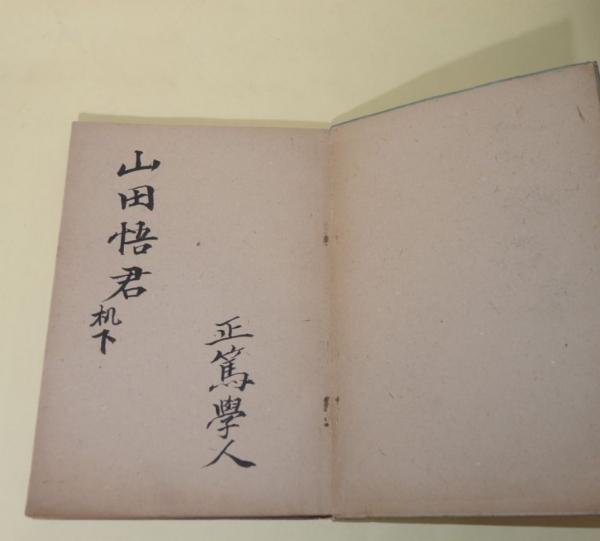 山田悟君
机下
正篤學人